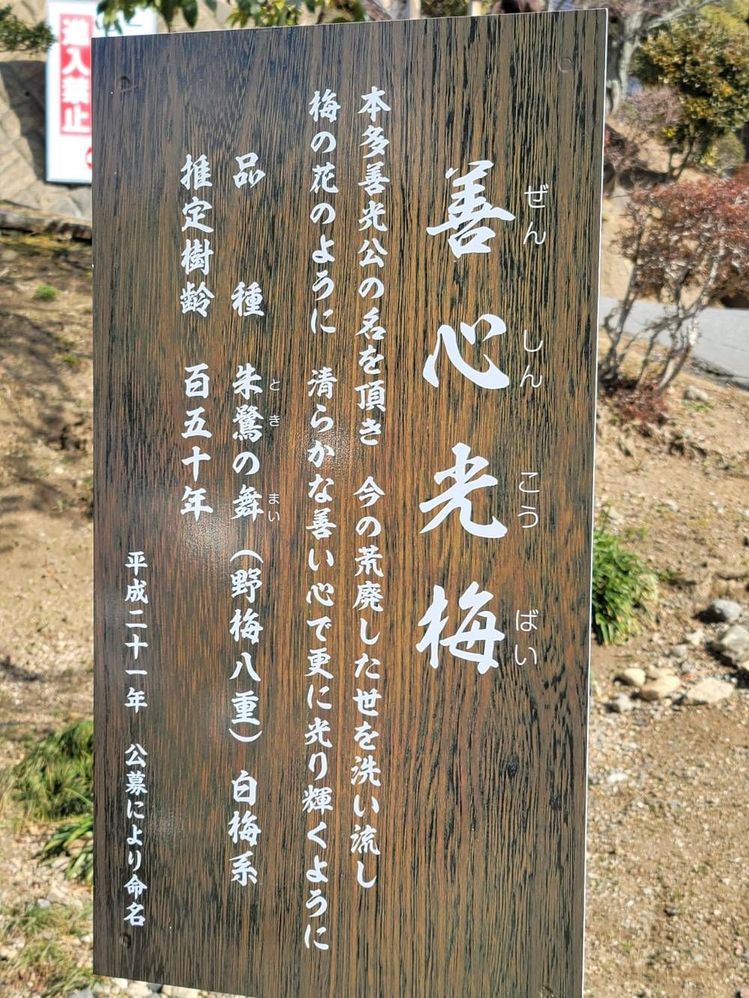 善心光梅
ぜんしんこうばい
本多善光公の名を頂き 今の荒廃した世を洗い流し
梅の花のように 清らかな善い心で更に光り輝くように
品種 朱鷺の舞(野梅八重)白梅系
とき まい
推定樹齢 百五十年
平成二十一年 公募により命名
進入禁止